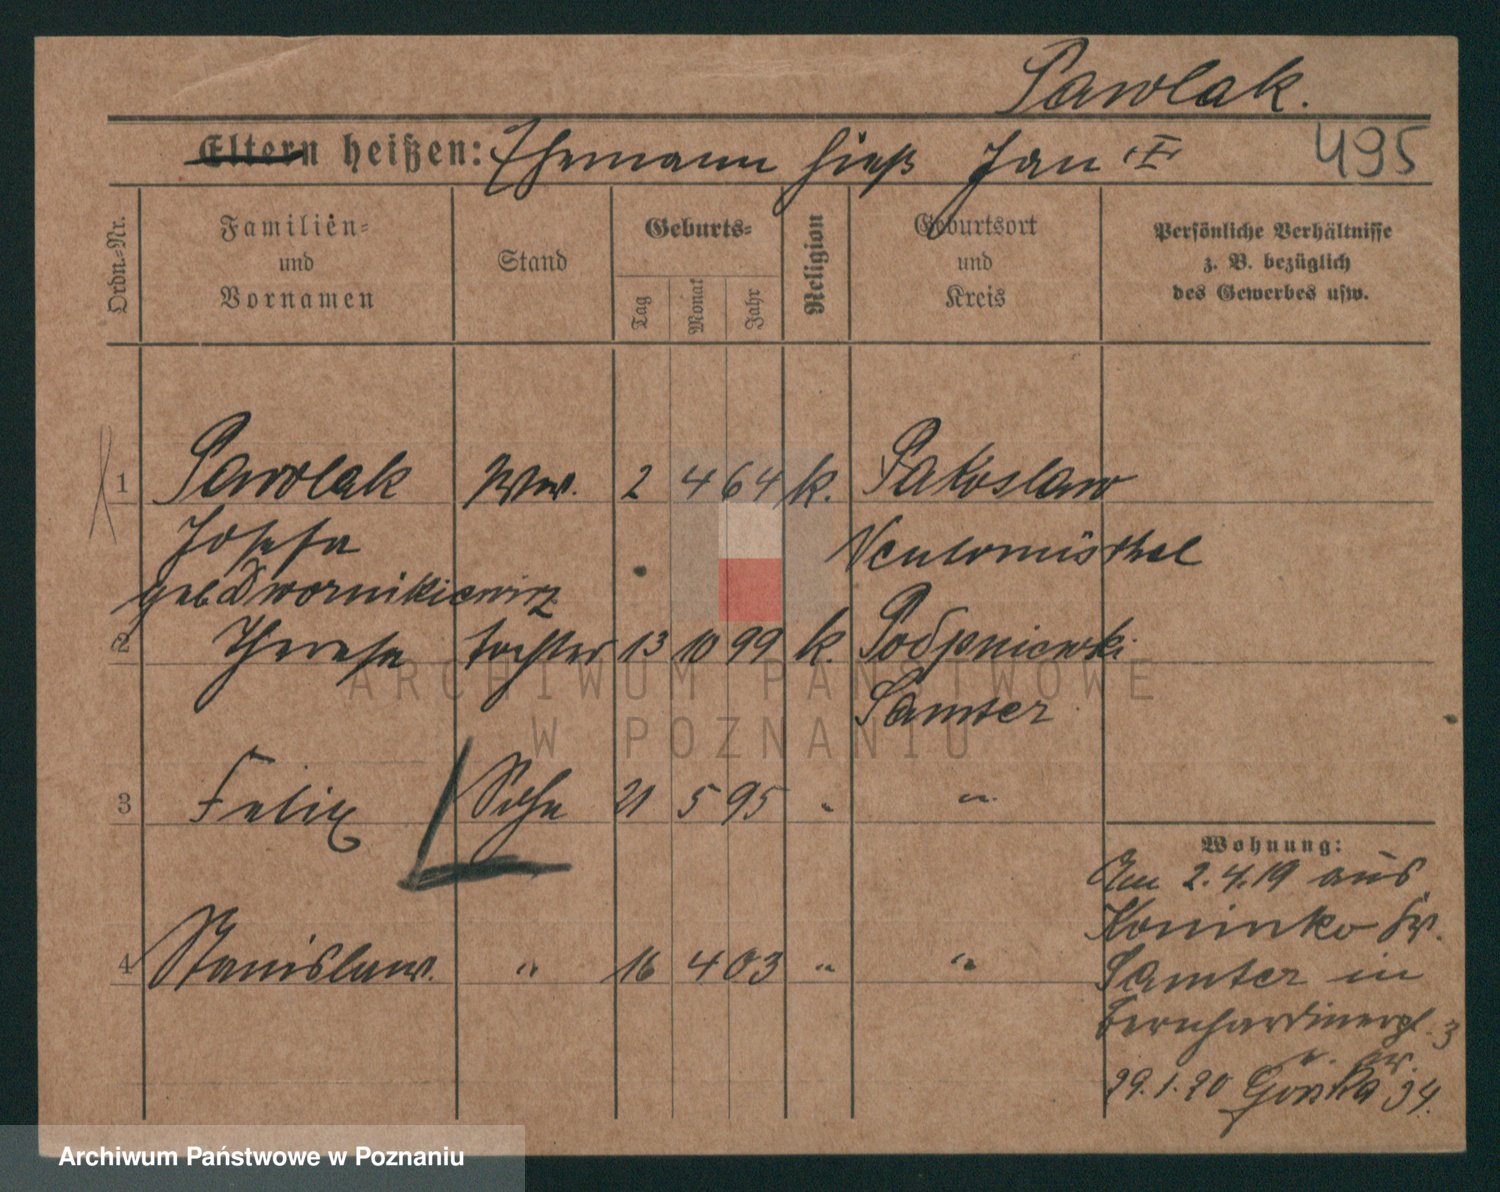 Pawlak.
Eltern heißen: Ehemann hieß Jan I
495
Ordn.-Nr.
Familien- und Vornamen
Stand
Geburts-
Tag
Monat
Jahr
Religion
Geburtsort und Kreis
Persönliche Verhältnisse z. B. bezüglich des Gewerbes usw.
1 Pawlak Ww. 2 4 64 k. Pakoslaw
Josefa Neutomischel
geb Dwornikiewicz
2 Theresa Tochter 13 10 99 k. Podpniewki
Samter
3 Felix Sohn 21 5 95 " "
Wohnung:
Am 2.4.19 aus
Koninko Kr.
4 Stanislaus. " 16 4 03 " "
Samter in
Bernhardinerpl. 3
29.1.20 Górka 34.
ARCHIWUM PAŃSTWOWE
W POZNANIU
Archiwum Państwowe w Poznaniu